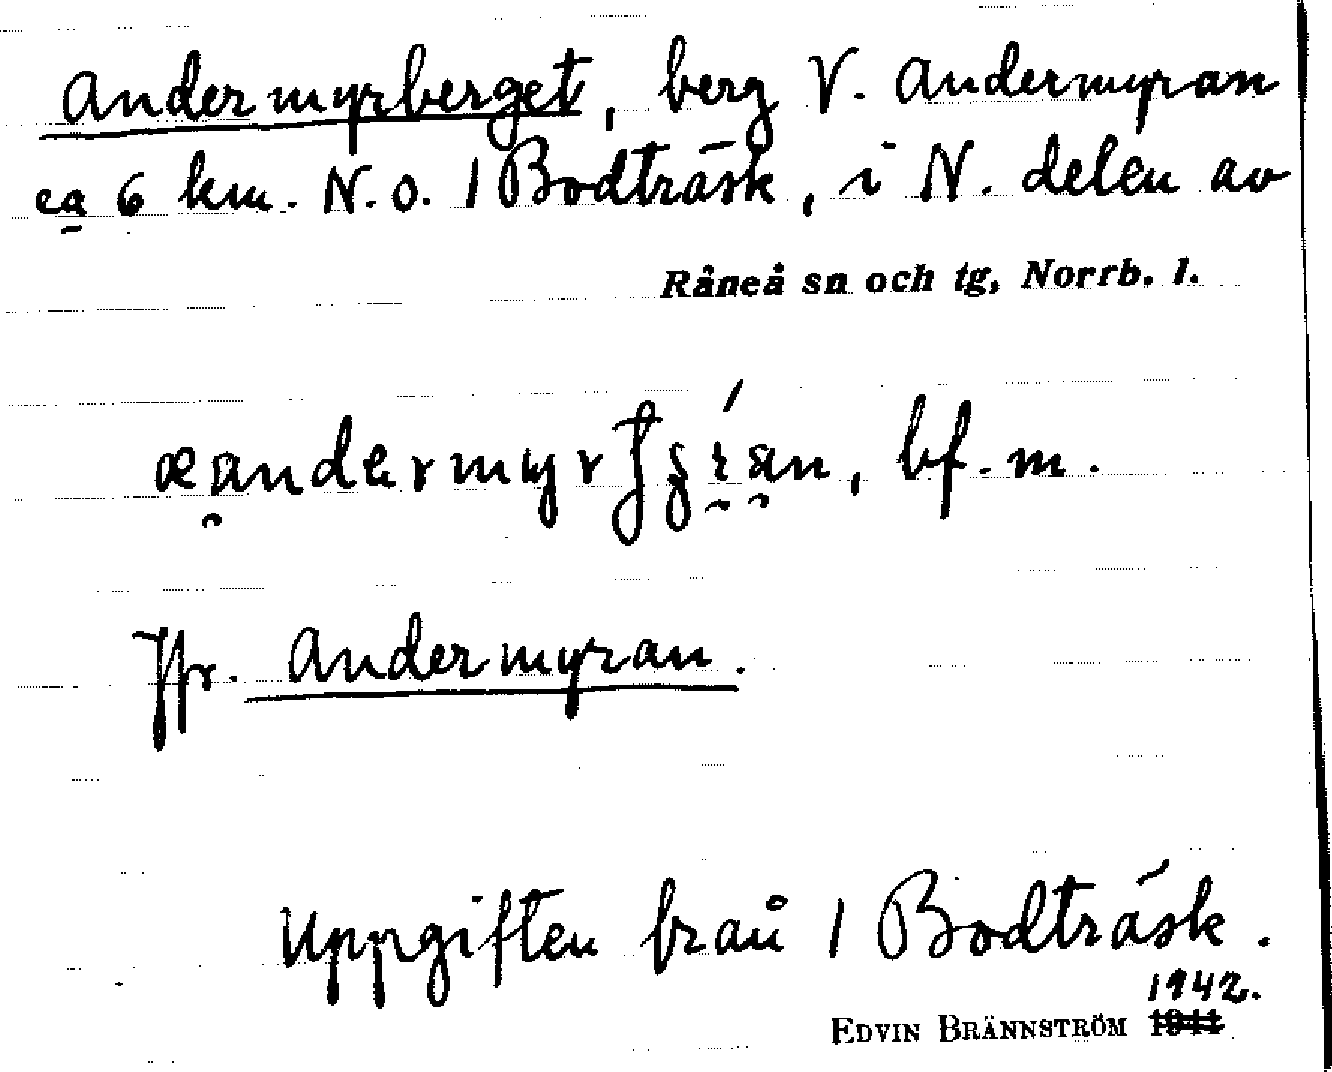 Andermyrberget, berg V. Andermyran
ca 6 km. N.O. / Bodträsk, i N. delen av
Råneå sn och tg, Norrb. l.
bf. m.
Jfr. Andermyran.
Uppgiften från / Bodträsk.
1942.
EDVIN BRÄNNSTRÖM 1941